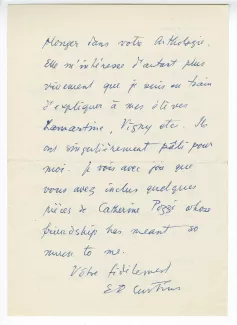 plonger dans votre Anthologie.
Elle m'intéresse d'autant plus
vivement que je suis en train
d'expliquer à mes élèves
Lamartine, Vigny etc. Ils
ont singulièrement pâli pour
moi. Je vois avec joie que
vous avez inclus quelques
pièces de Catherine Pozzi whose
friendship has meant so
much to me.
Vôtre fidèlement
E R Curtius